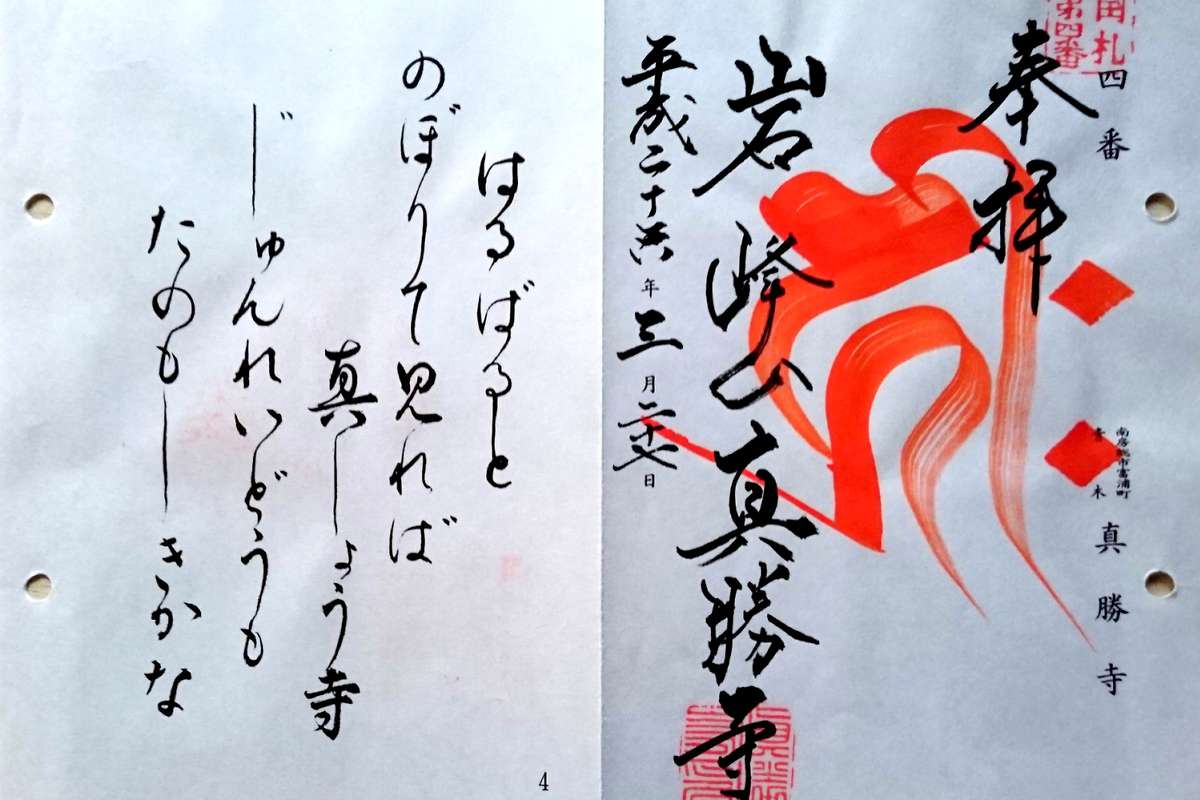 第四番
四番 南房総市富浦町 青木 真勝寺
奉拝
岩峰山真勝寺
平成二十六年三月二十七日
はるばると
のぼりて見れば
真しょう寺
じゅんれいどうも
たのもしきかな
4